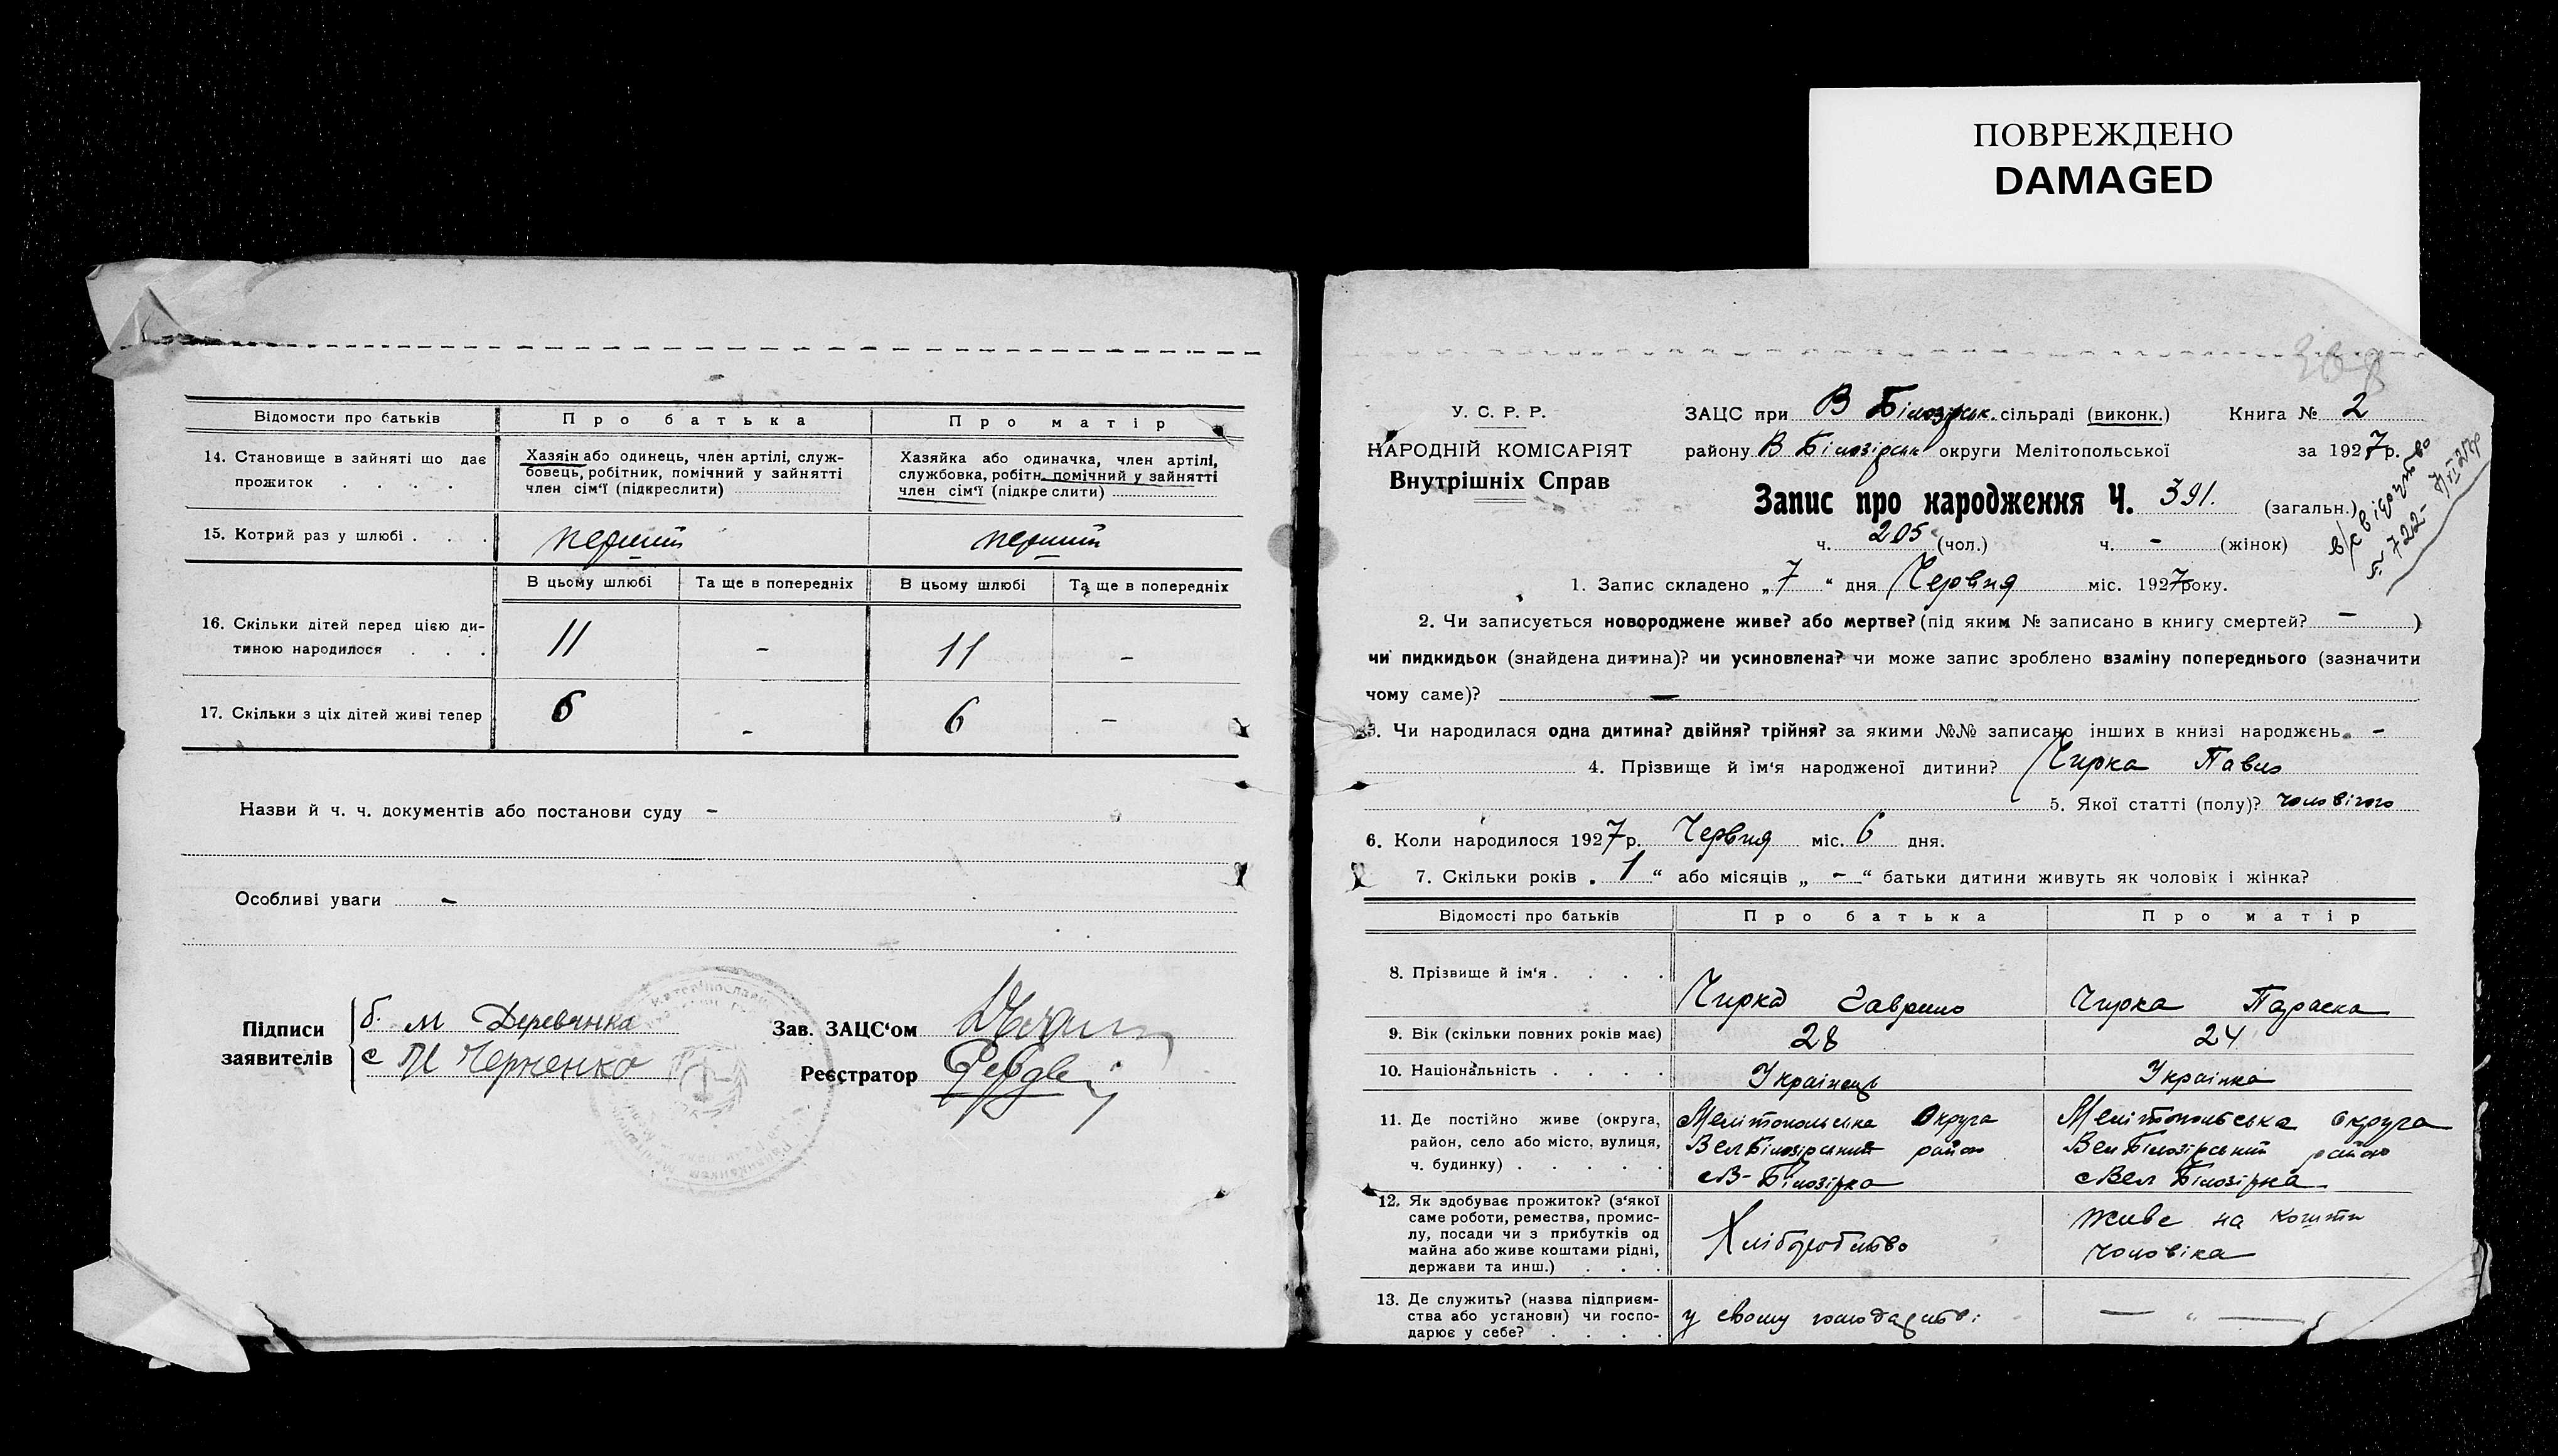 ПОВРЕЖДЕНО
DAMAGED
Відомости про батьків
Про батька
Про матір
14. Становище в зайняті що дає
прожиток . . . .
Хазяін або одинець, член артілі, служ-
бовець, робітник, помічний у зайнятті
член сім'ї (підкреслити)
Хазяйка або одиначка, член артілі,
службовка, робітн. помічний у зайнятті
член сім'ї (підкре слити)
15. Котрий раз у шлюбі . . .
перший
перший
В цьому шлюбі
Та ще в попередніх
В цьому шлюбі
Та ще в попередніх
16. Скільки дітей перед цією ди-
тиною народилося . . .
11
-
11
-
17. Скільки з ціх дітей живі тепер
6
-
6
-
Назви й ч. ч. документів або постанови суду -
Особливі уваги -
Підписи
заявителів
б. м Деревянка
с П Черненко
Зав. ЗАЦС'ом
Реєстратор
У. С. Р. Р.
НАРОДНІЙ КОМІСАРІЯТ
Внутрішніх Справ
ЗАЦС при В Білозірськ. сільраді (виконк.) Книга № 2
району В Білозірськ округи Мелітопольської за 1927р.
Запис про народження Ч. 391. (загальн.)
ч. 205 (чол.) ч. - (жінок)
1. Запис складено „7“ дня Червня міс. 1927року.
2. Чи записується новороджене живе? або мертве? (під яким № записано в книгу смертей? - )
чи пидкидьок (знайдена дитина)? чи усиновлена? чи може запис зроблено взаміну попереднього (зазначити
чому саме)? -
3. Чи народилася одна дитина? двійня? трійня? за якими №№ записано інших в книзі народжєнь. -
4. Прізвище й ім'я народженої дитини? Чирка Павло
5. Якої статті (полу)? чоловічого
6. Коли народилося 1927р. Червня міс. 6 дня.
7. Скільки років „1“ або місяців „-“ батьки дитини живуть як чоловік і жінка?
Відомості про батьків
Про батька
Про матір
8. Прізвище й ім'я . . . .
Чирка Гаврило
Чирка Параска
9. Вік (скільки повних років має)
28
24
10. Національність . . . .
Українець
Українка
11. Де постійно живе (округа,
район, село або місто, вулиця,
ч. будинку) . . . . .
Мелітопольська Округа
ВелБілозірський район
с В-Білозірка
Мелітопольська округа
ВелБілозірський район
с Вел Білозірка
12. Як здобуває прожиток? (з'якої
саме роботи, ремества, промис-
лу, посади чи з прибутків од
майна або живе коштами рідні,
держави та инш.) . . .
Хліборобство
живе на кошти
чоловіка
13. Де служить? (назва підприєм-
ства або установи) чи госпо-
дарює у себе? . . . .
у свому господарстві
— „ —